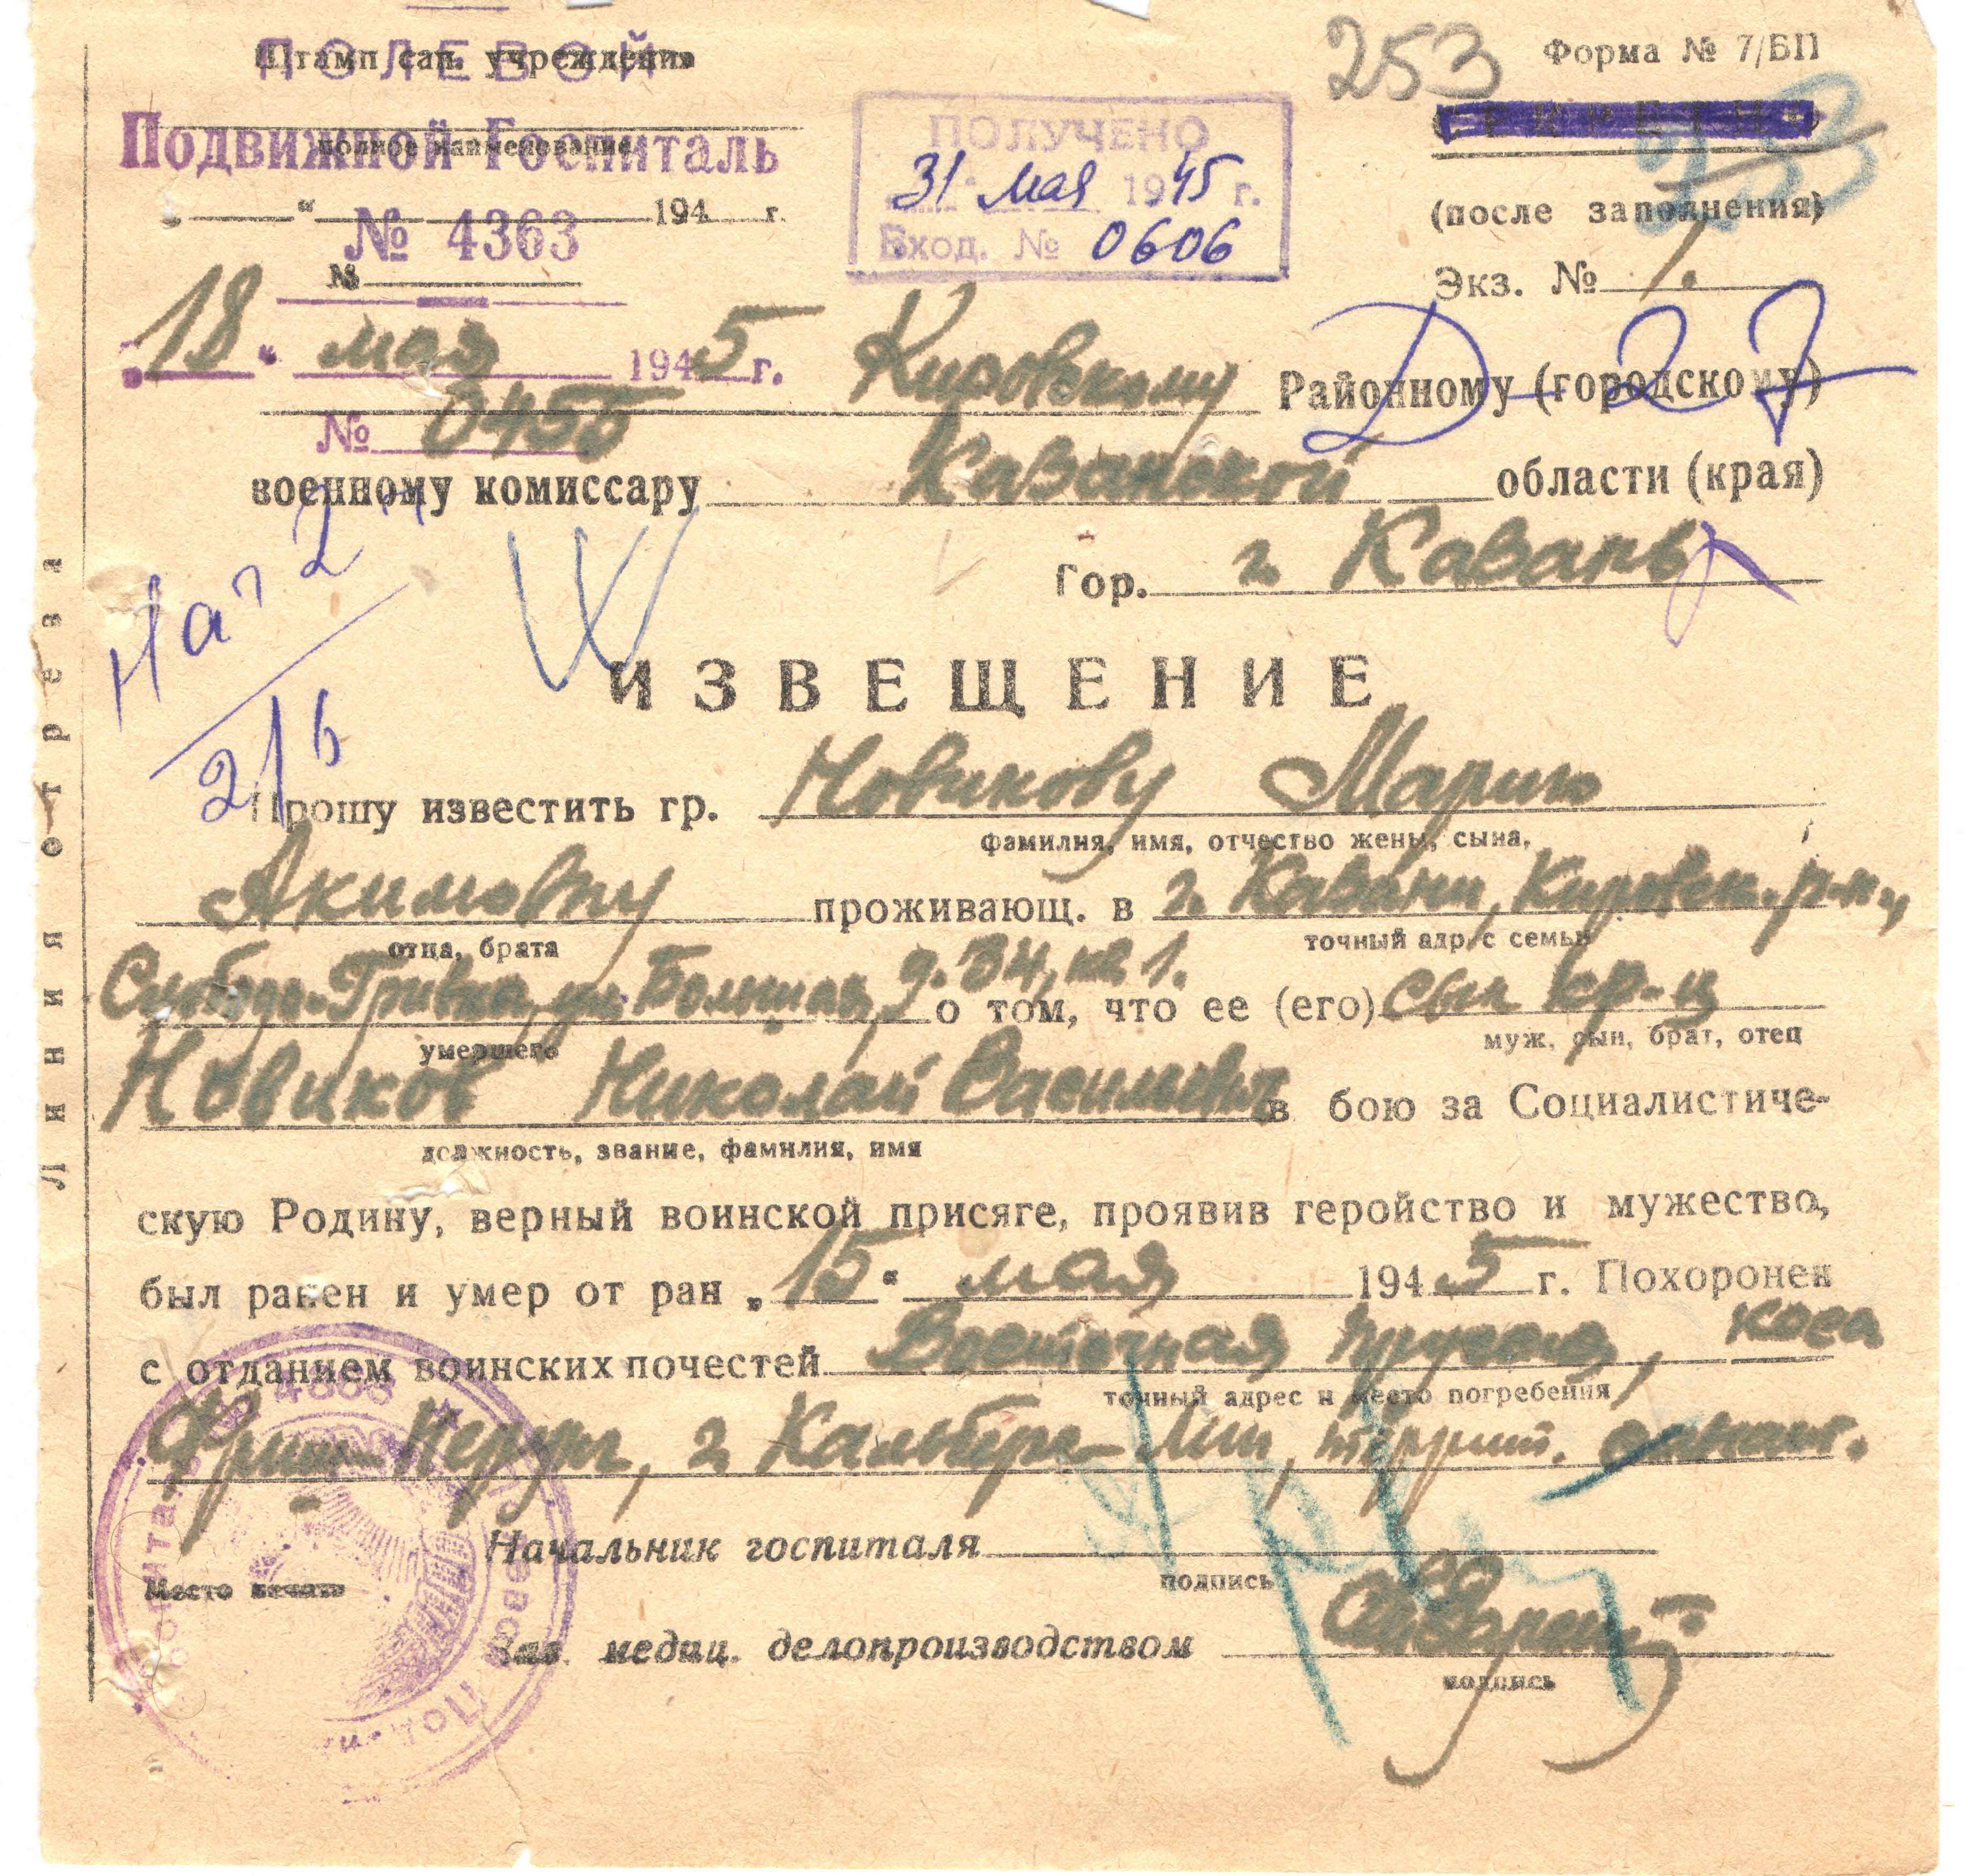 253
Форма № 7/БП
Штамп сан. учреждения
ПОЛЕВОЙ
СЕКРЕТНО
Подвижной Госпиталь
полное наименование
(после заполнения)
ПОЛУЧЕНО
31 мая 1945 г.
Вход. № 0606
"___" ___ 194__ г.
№ 4363
№
Экз. № 1.
18 " мая 1945 г.
№ 0455
Д-27
Кировскому Районному (городскому)
военному комиссару Казанской области (края)
Гор. г. Казань
21/6
ИЗВЕЩЕНИЕ
Прошу известить гр. Новикову Марию
фамилия, имя, отчество жены, сына,
Акимовну проживающ. в г. Казани, Кировск. р-н,
отца, брата точный адрес семьи
Слобода-Гривка, ул. Большая, д. 34, кв 1. о том, что ее (его) сын кр-ц
умершего муж, сын, брат, отец
Новиков Николай Васильевич в бою за Социалистиче-
должность, звание, фамилия, имя
скую Родину, верный воинской присяге, проявив геройство и мужество,
был ранен и умер от ран „15" мая 1945 г. Похоронен
с отданием воинских почестей Восточная Пруссия, коса
точный адрес и место погребения
Фриш-Нерунг, г. Кальберг-Лип, террит.
Начальник госпиталя
подпись
Место печати
Зав. медиц. делопроизводством
подпись
Линия отреза